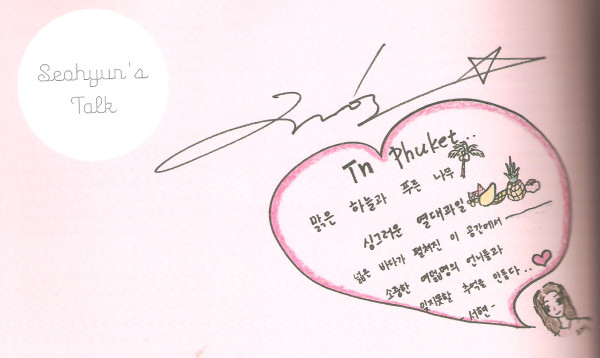 Seohyun's
Talk
In Phuket...
맑은 하늘과 푸른 나무
싱그러운 열대과일
넓은 바다가 펼쳐진 이 공간에서
소중한 여덟명의 언니들과
잊지못할 추억을 만들다..
- 서현 -